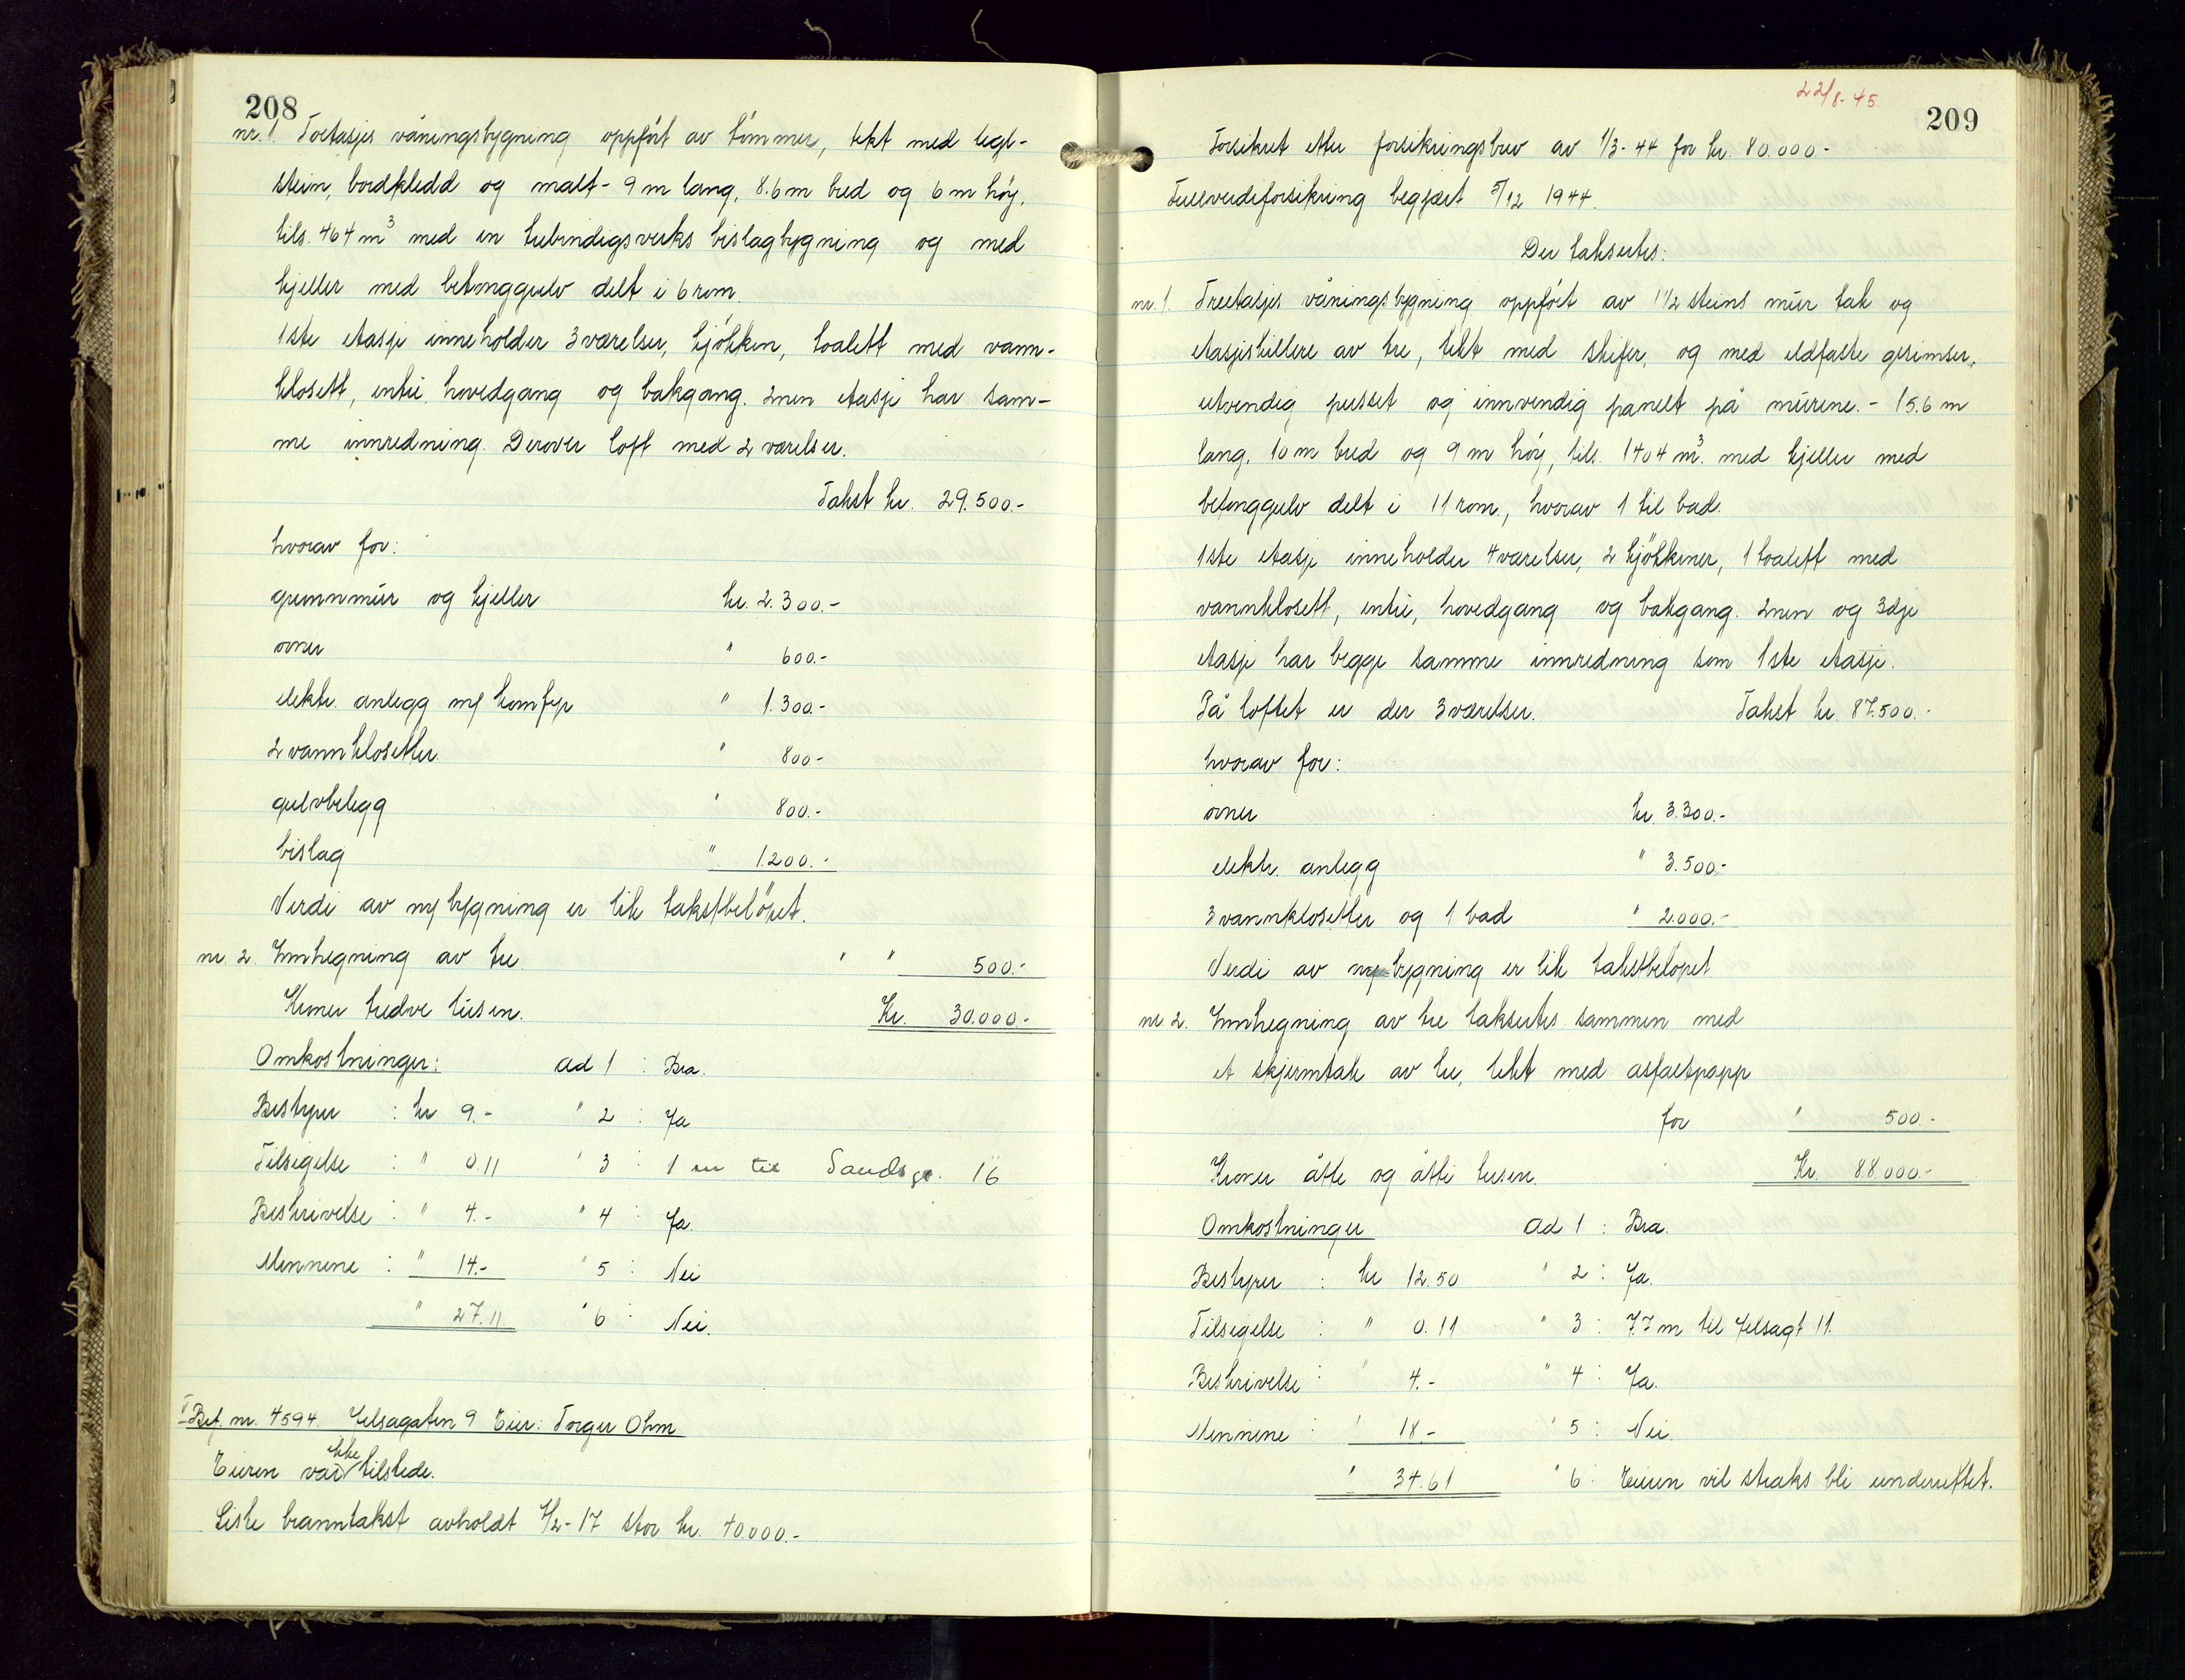 208
nr. 1. Toetasjes våningsbygning oppført av tømmer, tekt med tegl-
stein, bordkledd og malt - 9 m lang, 8.6 m bred og 6 m høy,
tils. 464 m³ med en trebindigsverks bislagbygning og med
kjeller med betonggulv delt i 6 rom.
1ste etasje inneholder 3 værelser, kjøkken, toalett med vann-
klosett, entré, hovedgang og bakgang. 2nen etasje har sam-
me innredning. Derover loft med 2 værelser.
Takst kr. 29.500.-
hvorav for:
grunnmur og kjeller kr. 2.300.-
ovner " 600.-
elektr. anlegg m/ komfyr " 1.300.-
2 vannklosetter " 800.-
gulvbelegg " 800.-
bislag " 1.200.-
Verdi av ny bygning er lik takstbeløpet.
nr. 2. Innhegning av tre " " 500.-
Kroner tredve tusen. Kr. 30.000.-
Omkostninger: ad 1 : Bra.
Bestyrer : kr 9.- " 2 : Ja
Tilsigelse : " 0.11 " 3 : 1 m til Sandsgt. 16
Beskrivelse : " 4.- " 4 : Ja.
Mennene : " 14.- " 5 : Nei
" 27.11 " 6 : Nei.
V Bet. nr. 4594. Jelsagaten 9 Eier: Torger Ohm
Eieren var ikke tilstede.
Siste branntakst avholdt 1/2-17 stor kr. 40.000.-
22/8-45.
209
Forsikret etter forsikringsbrev av 1/3-44 for kr. 80.000.-
Fullverdiforsikring begjært 5/12 1944.
Der taksertes:
nr. 1. Treetasjes våningsbygning oppført av 1 1/2 steins mur tak og
etasjeskillere av tre, tekt med skifer, og med eldfaste gesimser,
utvendig pusset og innvendig panelt på murene. - 15.6 m
lang, 10 m bred og 9 m høy, tils. 1404 m³. med kjeller med
betonggulv delt i 11 rom, hvorav 1 til bad.
1ste etasje inneholder 4 værelser, 2 kjøkkener, 1 toalett med
vannklosett, entré, hovedgang og bakgang. 2nen og 3dje
etasje har begge samme innredning som 1ste etasje.
På loftet er der 3 værelser. Takst kr. 87.500.-
hvorav for:
ovner kr. 3.300.-
elektr. anlegg " 3.500.-
3 vannklosetter og 1 bad " 2.000.-
Verdi av ny bygning er lik takstbeløpet
nr 2. Innhegning av tre taksertes sammen med
et skjermtak av tre, tekt med asfaltpapp
for " 500.-
Kroner åtte og åtti tusen. Kr. 88.000.-
Omkostninger ad 1 : Bra.
Bestyrer : kr 12.50 " 2 : Ja.
Tilsigelse : " 0.11 " 3 : 7.7 m til Jelsagt 11.
Beskrivelse : " 4.- " 4 : Ja.
Mennene : " 18.- " 5 : Nei.
" 34.61 " 6 : Eieren vil straks bli underrettet.